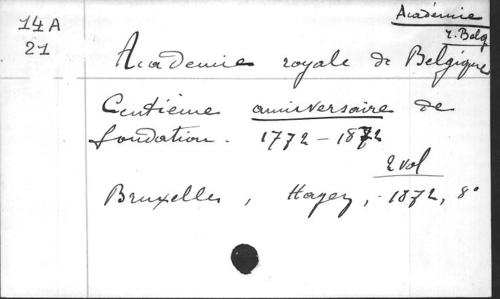 14A
21
Académie
r. Belg
Academie royale de Belgique
Centième anniversaire de
fondation. 1772-1872
2 vol
Bruxelles, Hayez, 1872, 8°